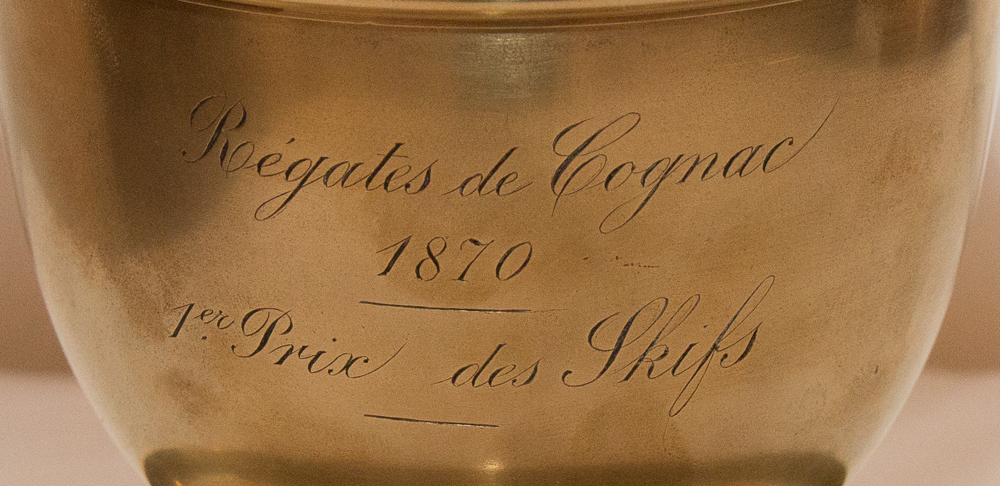 Régates de Cognac
1870
1er. Prix des Skifs